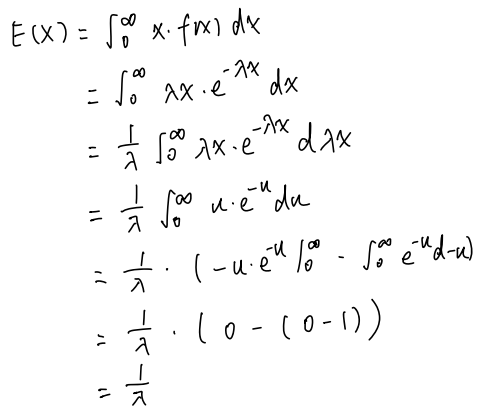 E(X) = ∫₀^∞ x · f(x) dx
= ∫₀^∞ λx · e^{-λx} dx
= 1/λ ∫₀^∞ λx · e^{-λx} d λx
= 1/λ ∫₀^∞ u · e^{-u} du
= 1/λ · (-u · e^{-u} |₀^∞ - ∫₀^∞ e^{-u} d-u)
= 1/λ · (0 - (0 - 1))
= 1/λ